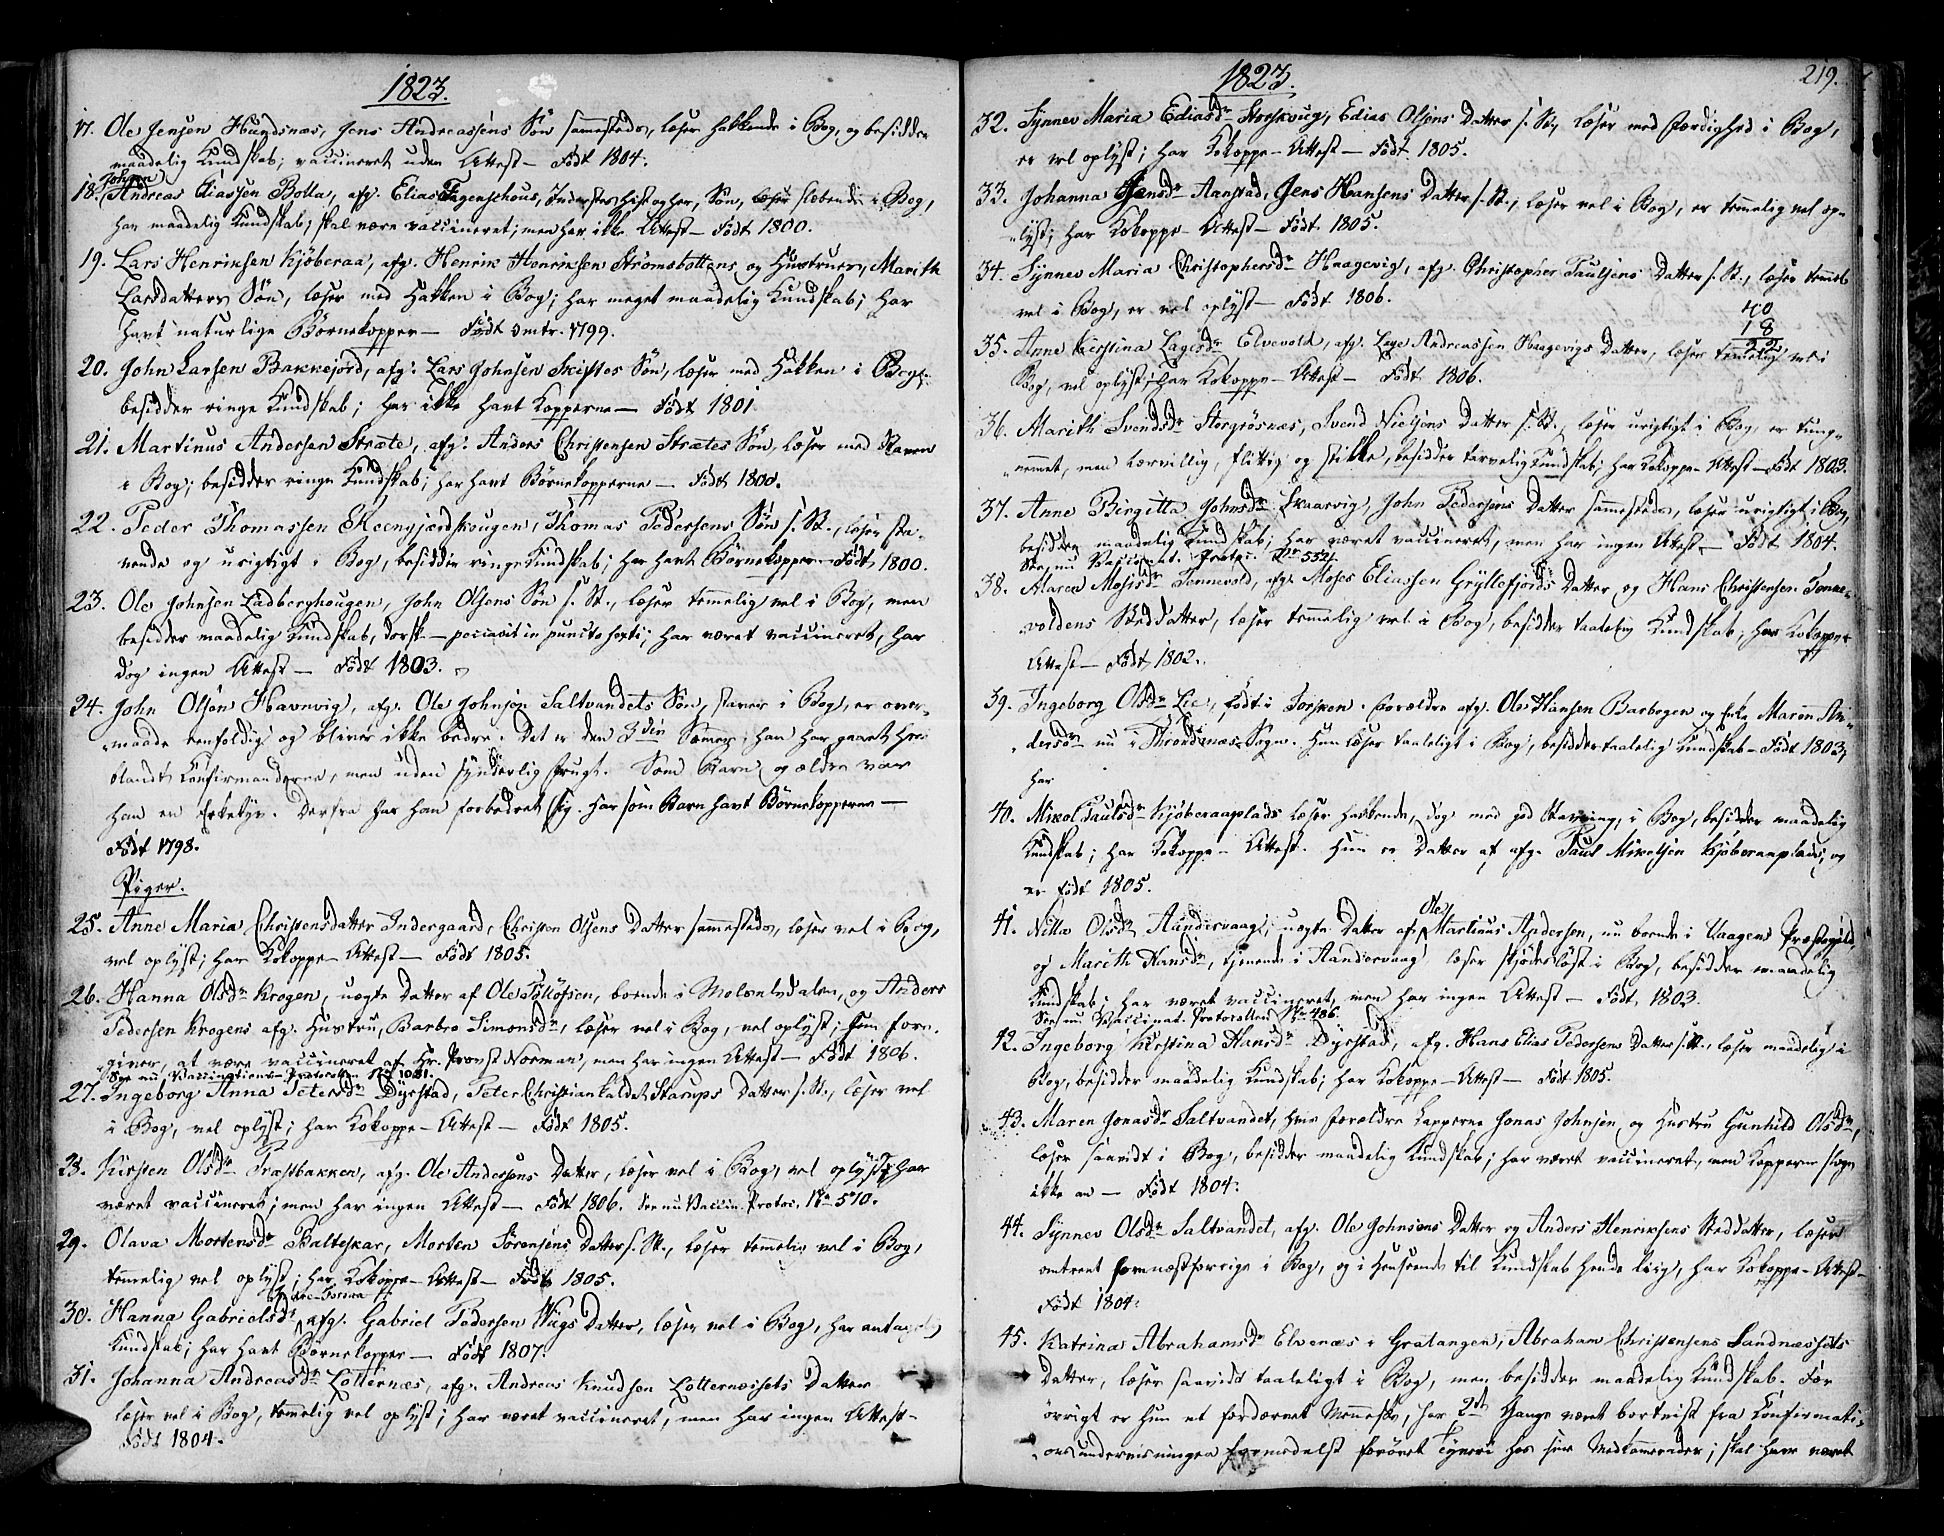 1823.
17. Ole Jensen Hundsnæs, Jens Andreassens Søn sammesteds, læser hakkende i Bog, og besidder
maadelig Kundskab; vaccineret uden Attest — Født 1804.
Johan
18. Andreas Eliassen Bolla, afg. Elias Fagenschous, Inderster hist og her, Søn, læser slæbende i Bog,
har maadelig Kundskab; skal være vaccineret; men har ikke Attest — Født 1800.
19. Lars Henriksen Kjøberaa, afg. Henrik Henriksen Strømsbottens og Hustrues, Marith
Larsdatters Søn, læser med Hakken i Bog; har meget maadelig Kundskab; har
havt naturlige Børnekopper — Født omtr. 1799.
20. John Larsen Bakkejord, afg: Lars Johnsen Skiftes Søn, læser med Hakken i Bog;
besidder ringe Kundskab; har ikke havt Kopperne — Født 1801
21. Martinus Andersen Stræte, afg: Anders Christensen Strætes Søn, læser med Staven
i Bog; besidder ringe Kundskab; har havt Børnekopperne — Født 1800.
22. Peder Thomassen Skougen, Thomas Pedersens Søn s. St., læser sta-
vende og urigtigt i Bog, besidder ringe Kundskab; har havt Børnekopper — Født 1800.
23. Ole Johnsen Ladberghougen, John Olsens Søn s. St., læser temmelig vel i Bog, men
besidder maadelig Kundskab, dorsk — peccavit in puncto sexti; har været vaccineret, har
dog ingen Attest — Født 1803.
24. John Olsen Havnvig, afg. Ole Johnsen Saltvandets Søn, staver i Bog, er over-
maade eenfoldig og bliver ikke bedre. Det er den 3die Sommer, han har gaaet her
blandt Confirmanderne, men uden synderlig Frugt. Som Barn og ældre var
han en Erketyv. Derfra har han forbedret sig. Har som Barn havt Børnekopperne —
Født 1798.
Piger.
25. Anne Maria Christensdatter Indergaard, Christen Olsens Datter sammesteds, læser vel i Bog,
vel oplyst; har Kokoppe-Attest — Født 1805.
26. Hanna Olsdr Krogen, uægte Datter af Ole Tollofsen, boende i Molselvdalen, og Anders
Pedersen Krogens afg. Hustru, Barbro Simonsdr, læser vel i Bog, vel oplyst; hun fore-
giver, at være vaccineret af Hr. Provst Norman, men har ingen Attest — Født 1806.
See nu Vaccinations-Protocollen No 1031.
27. Ingeborg Anna Petersdr Dyrstad, Peter Christian Kaldet Starups Datter s. St., læser vel
i Bog, vel oplyst; har Kokoppe-Attest — Født 1805.
28. Kirsten Olsdr Præstbakken, afg. Ole Andersens Datter, læser vel i Bog, vel oplyst; har
været vaccineret; men har ingen Attest — Født 1806. See nu Vaccin. Protoc. No 510.
29. Olava Mortensdr Balteskar, Morten Sørensens Datter s. St., læser temmelig vel i Bog,
temmelig vel oplyst; har Kokoppe-Attest — Født 1805.
30. Hanna Gabrielsdr afg. Gabriel Pedersen Wigs Datter, læser vel i Bog, har antagelig
Kundskab; har havt Børnekopper — Født 1807.
31. Johanna Andreasdr Lotternæs, afg. Andreas Knudsen Lotternæssets Datter
læser vel i Bog, temmelig vel oplyst; har været vaccineret, men har ingen Attest —
Født 1804.
1823.
219.
32. Synnev Maria Ediasdr Storskvig, Edias Olsens Datter s. St., læser med Færdighed i Bog,
er vel oplyst; har Kokoppe-Attest — Født 1805.
33. Johanna Jensdr Aanstad, Jens Hansens Datter s. St., læser vel i Bog, er temmelig vel op-
lyst; har Kokoppe-Attest — Født 1805.
34. Synnev Maria Christophersdr Haagevig, afg. Christopher Paulsens Datter s. St., læser temmelig
vel i Bog, er vel oplyst — Født 1806.
40
18
22
35. Anne Kirstina Lagesdr Elvevold, afg. Lage Andreassen Haagevigs Datter, læser temmelig vel i
Bog, vel oplyst; har Kokoppe-Attest — Født 1806.
36. Marith Svendsdr Storgrøsnæs, Svend Nielsens Datter s. St., læser urigtigt i Bog, er tung-
nemmet, men lærvillig, flittig og stille, besidder tarvelig Kundskab; har Kokoppe-Attest — Født 1803.
37. Anne Birgitta Johnsdr Skaarvig, John Pedersens Datter sammesteds, læser urigtigt i Bog,
besidder maadelig Kundskab; har været vaccineret, men har ingen Attest — Født 1804.
See nu Vaccinat. Protoc. No 552.
38. Maren Mosesdr Tennevold, afg. Moses Eliassen Gryllefjords Datter og Hans Christensen Tenne-
voldens Steddatter, læser temmelig vel i Bog, besidder taalelig Kundskab; har Kokoppe-
Attest — Født 1802.
39. Ingeborg Olsdr Lie, født i Torsken. Forældre afg. Ole Hansen Barbogen og Enke Maren An-
dersdr nu i Throndenæs Sogn. Hun læser taaleligt i Bog, besidder taalelig Kundskab — Født 1803;
har
40. Mikol Paulsdr Kjøberaaplads læser hakkende, dog med god Stavning, i Bog, besidder maadelig
Kundskab; har Kokoppe-Attest. Hun er Datter af afg. Paul Mikelsen Kjøberaaplads, og
er født 1805.
41. Nilla Olsdr Aandervaag, uægte Datter af Ole Martinus Andersen, nu boende i Vaagens Præstegield,
og Marith Hansdr, tjenende i Aandervaag, læser skjødesløst i Bog, besidder maadelig
Kundskab; har været vaccineret, men har ingen Attest — Født 1803.
See nu Vaccinat. Protocollen No 486.
42. Ingeborg Kirstina Hansdr Dyrstad, afg. Hans Elias Pedersens Datter s. St., læser maadelig i
Bog, besidder maadelig Kundskab; har Kokoppe-Attest — Født 1805.
43. Maren Jonasdr Saltvandet, hvis Forældre Lapperne Jonas Johnsen og Hustru Gunhild Olsdr,
læser saavidt i Bog, besidder maadelig Kundskab; har været vaccineret, men Kopperne sloge
ikke an — Født 1804.
44. Synnev Olsdr Saltvandet, afg. Ole Johnsens Datter og Anders Henriksens Steddatter, læser
omtrent som næstforrige i Bog, og i Henseende til Kundskab hende liig, har Kokoppe-Attest —
Født 1804.
45. Katrina Abrahamsdr Elvenæs i Gratangen, Abraham Christensens Sandnæssets
Datter, læser saavidt taaleligt i Bog, men besidder maadelig Kundskab. For
øvrigt er hun et fordærvet Menneske, har 2de Gange været bortvist fra Confirmati-
onsundervisningen formedelst forøvet Tyveri hos sine Medkamerader; skal have været